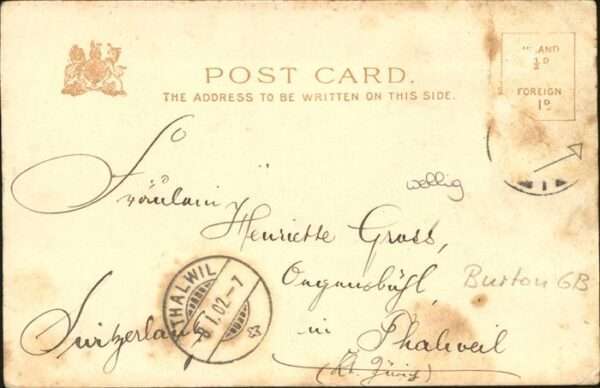 POST CARD.
THE ADDRESS TO BE WRITTEN ON THIS SIDE.
INLAND
½D
FOREIGN
1D
Fräulein
wellig
Henriette Gross,
Burton GB
THALWIL
-8 I.02-7
Switzerland
in Thalweil
(Kt. Zürich)